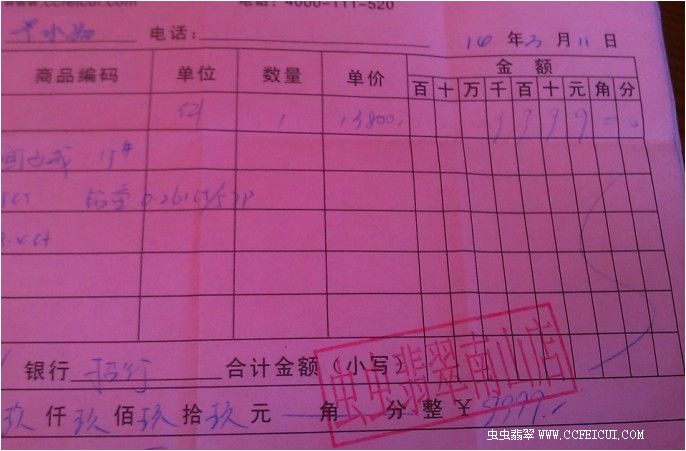 .ccfeicui.com 电话：4000-111-520
小姐 电话： 14 年 3 月 11 日
商品编码 单位 数量 单价 金额
百 十 万 千 百 十 元 角 分
1 13800. 9 9 9 9 0 0
15#
0.261ct/57P
银行 招行 合计金额（小写）
玖 仟 玖 佰 玖 拾 玖 元 角 分 整 ￥ 9999.
虫虫翡翠南山店
虫虫翡翠 WWW.CCFEICUI.COM